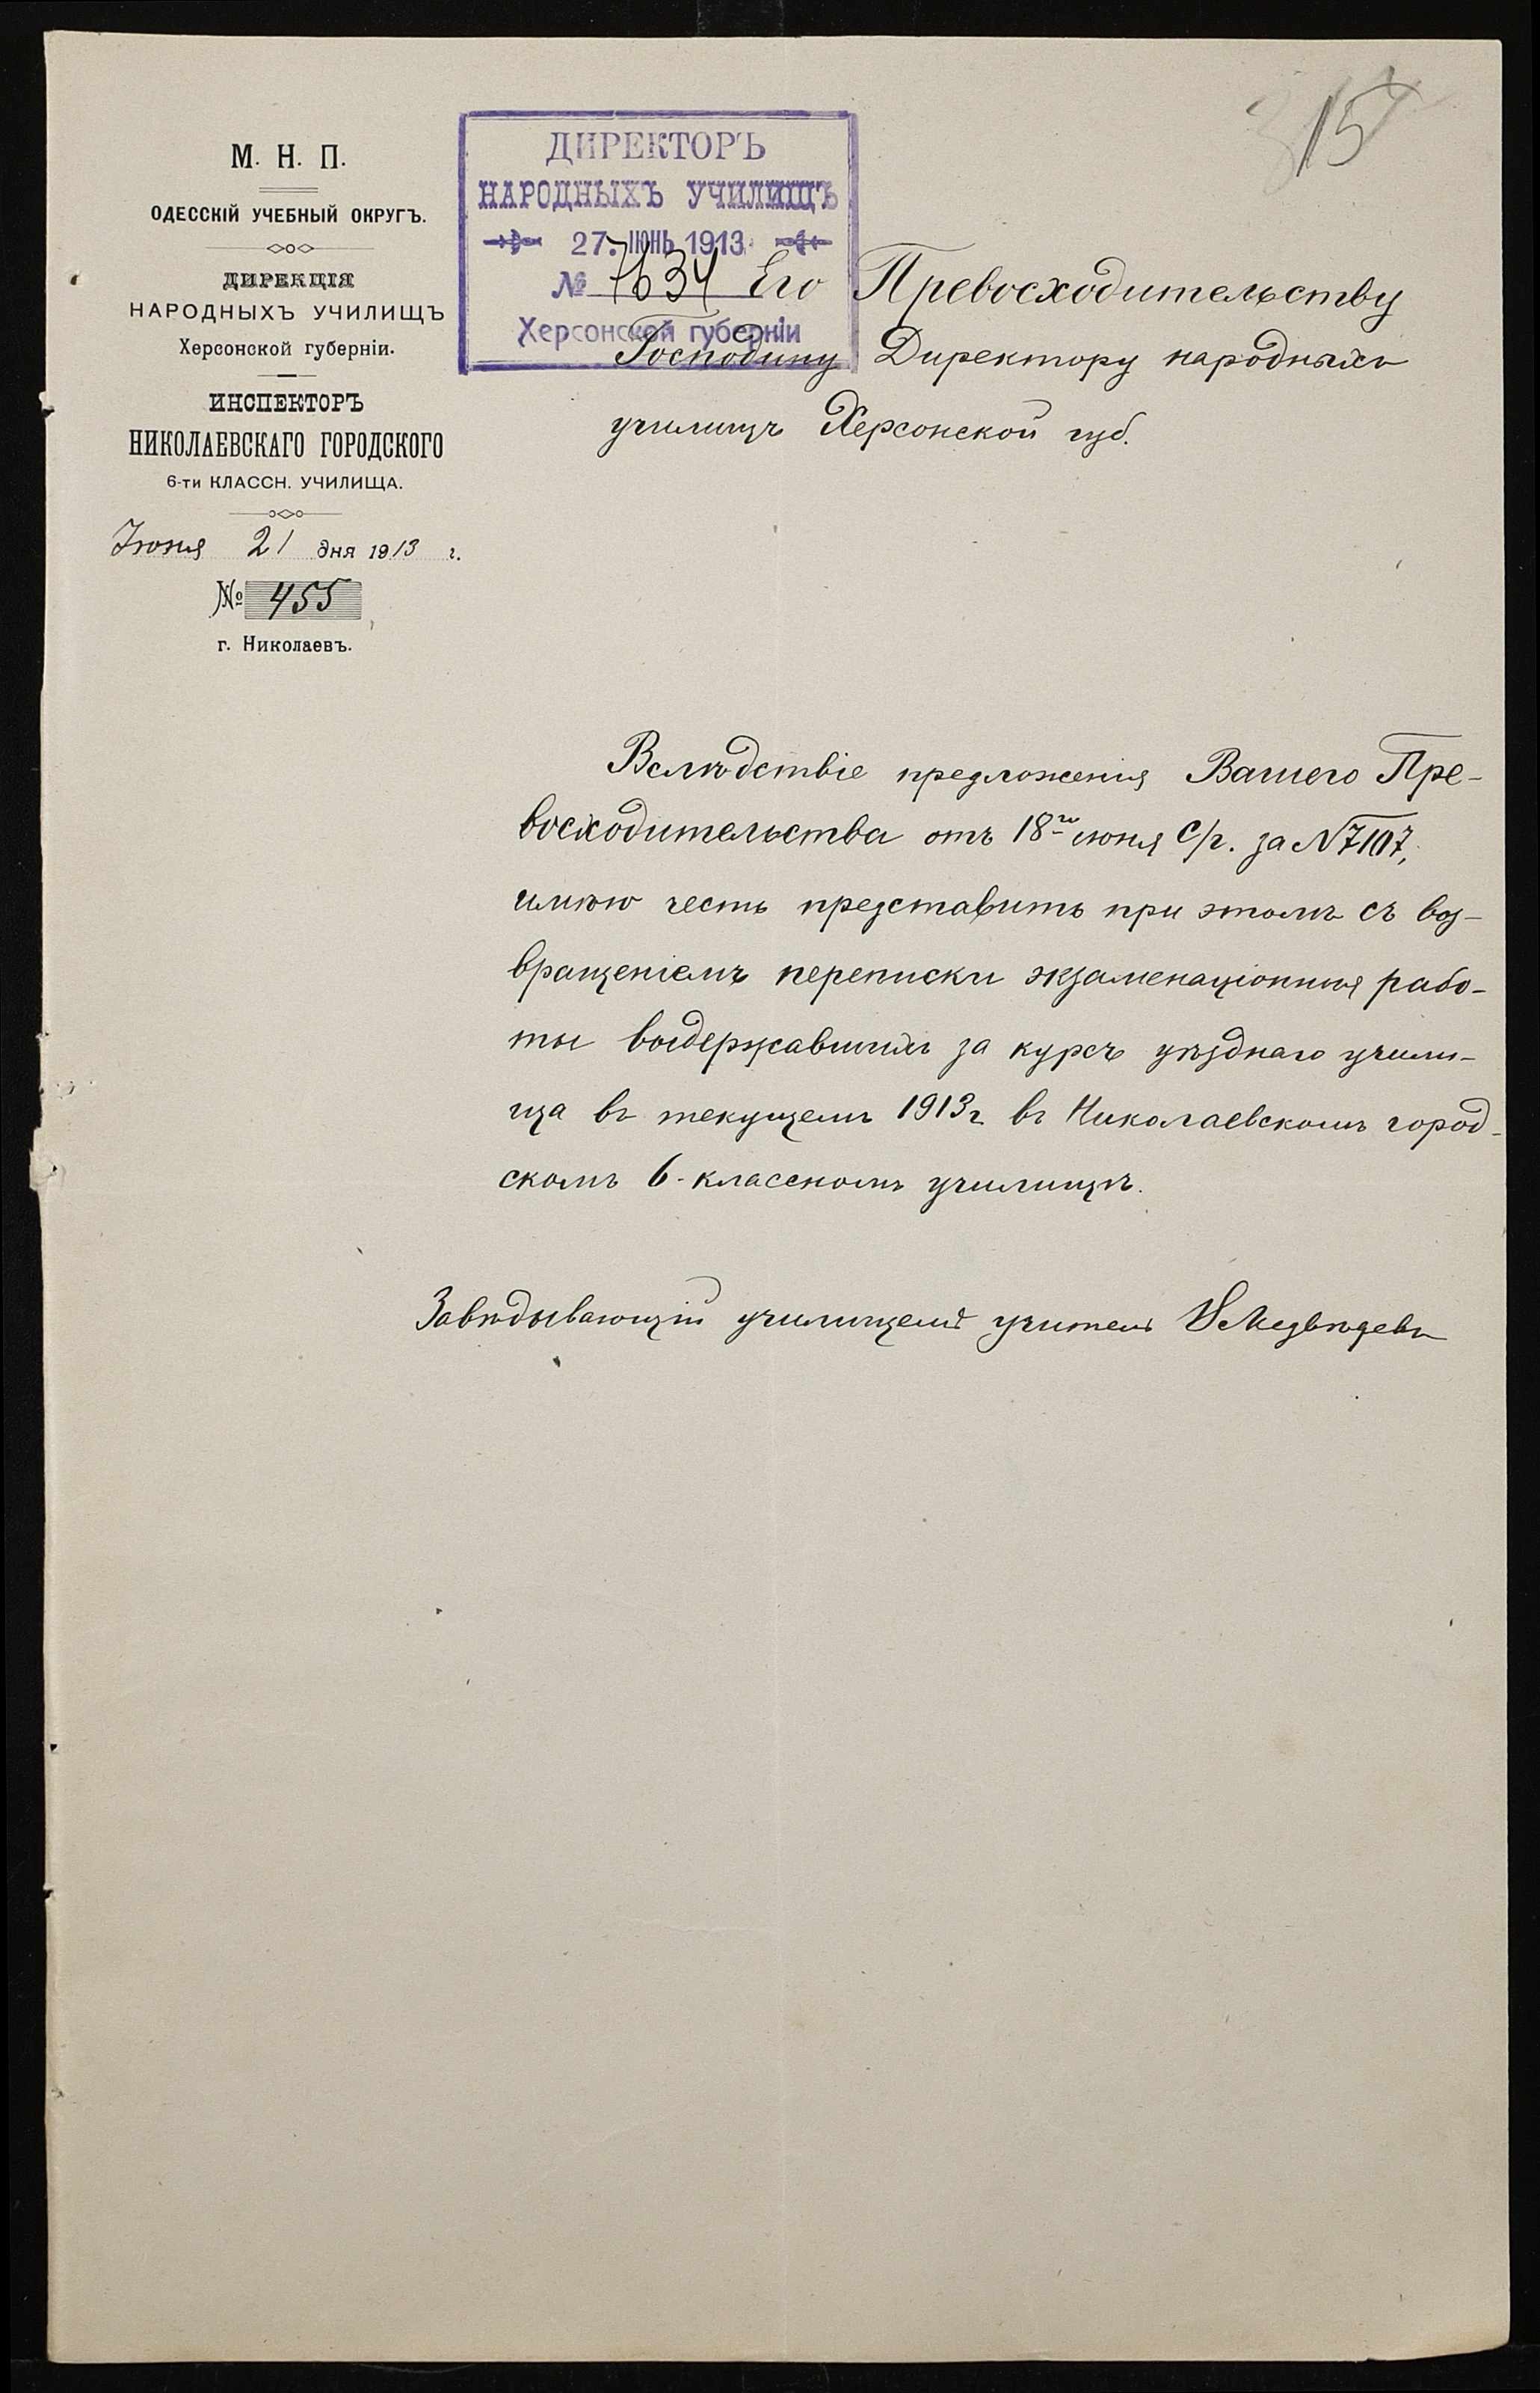 15
М. Н. П.
ОДЕССКІЙ УЧЕБНЫЙ ОКРУГЪ.
ДИРЕКЦІЯ
НАРОДНЫХЪ УЧИЛИЩЪ
Херсонской губерніи.
ИНСПЕКТОРЪ
НИКОЛАЕВСКАГО ГОРОДСКОГО
6-ти КЛАССН. УЧИЛИЩА.
Іюня 21 дня 1913 г.
№ 455
г. Николаевъ.
ДИРЕКТОРЪ
НАРОДНЫХЪ УЧИЛИЩЪ
27. ІЮНЬ 1913
№ 7634
Херсонской губерніи
Его Превосходительству
Господину Директору народныхъ
училищъ Херсонской губ.
Вслѣдствіе предложенія Вашего Пре-
восходительства отъ 18го іюня с/г. за № 7107,
имѣю честь представить при этомъ съ воз-
вращеніемъ переписки экзаменаціонныя рабо-
ты выдержавшихъ за курсъ уѣзднаго учили-
ща въ текущемъ 1913 г. въ Николаевскомъ город-
скомъ 6-классномъ училищѣ.
Завѣдывающій училищемъ учитель Медвѣдевъ